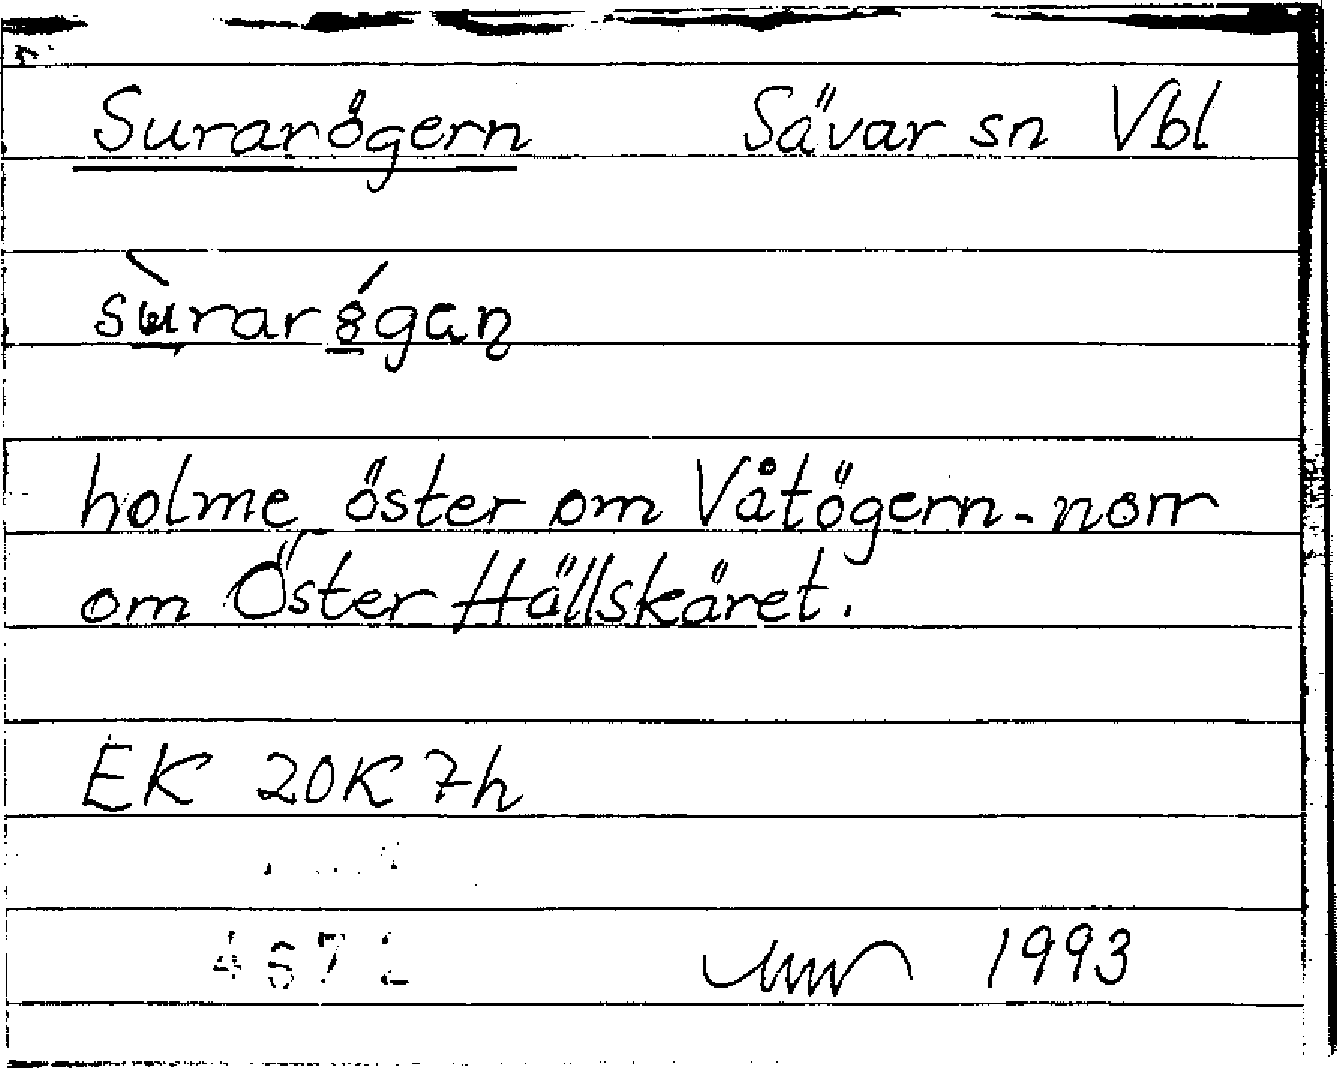 Surarögern Sävar sn Vbl
holme öster om Våtögern - norr
om Öster Hällskäret.
EK 20K 7h
1993